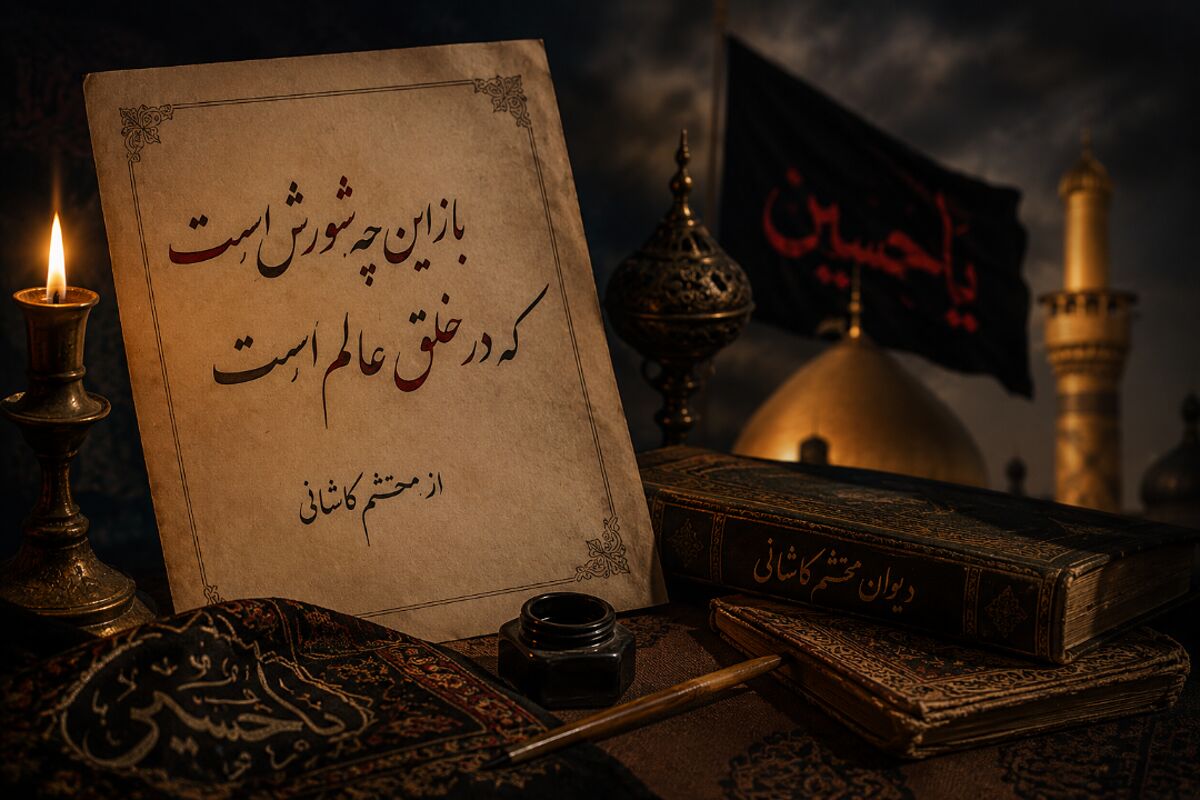 باز این چه شورش است
که در خلق عالم است
از محتشم کاشانی
یا حسین
دیوان محتشم کاشانی
یا حسین